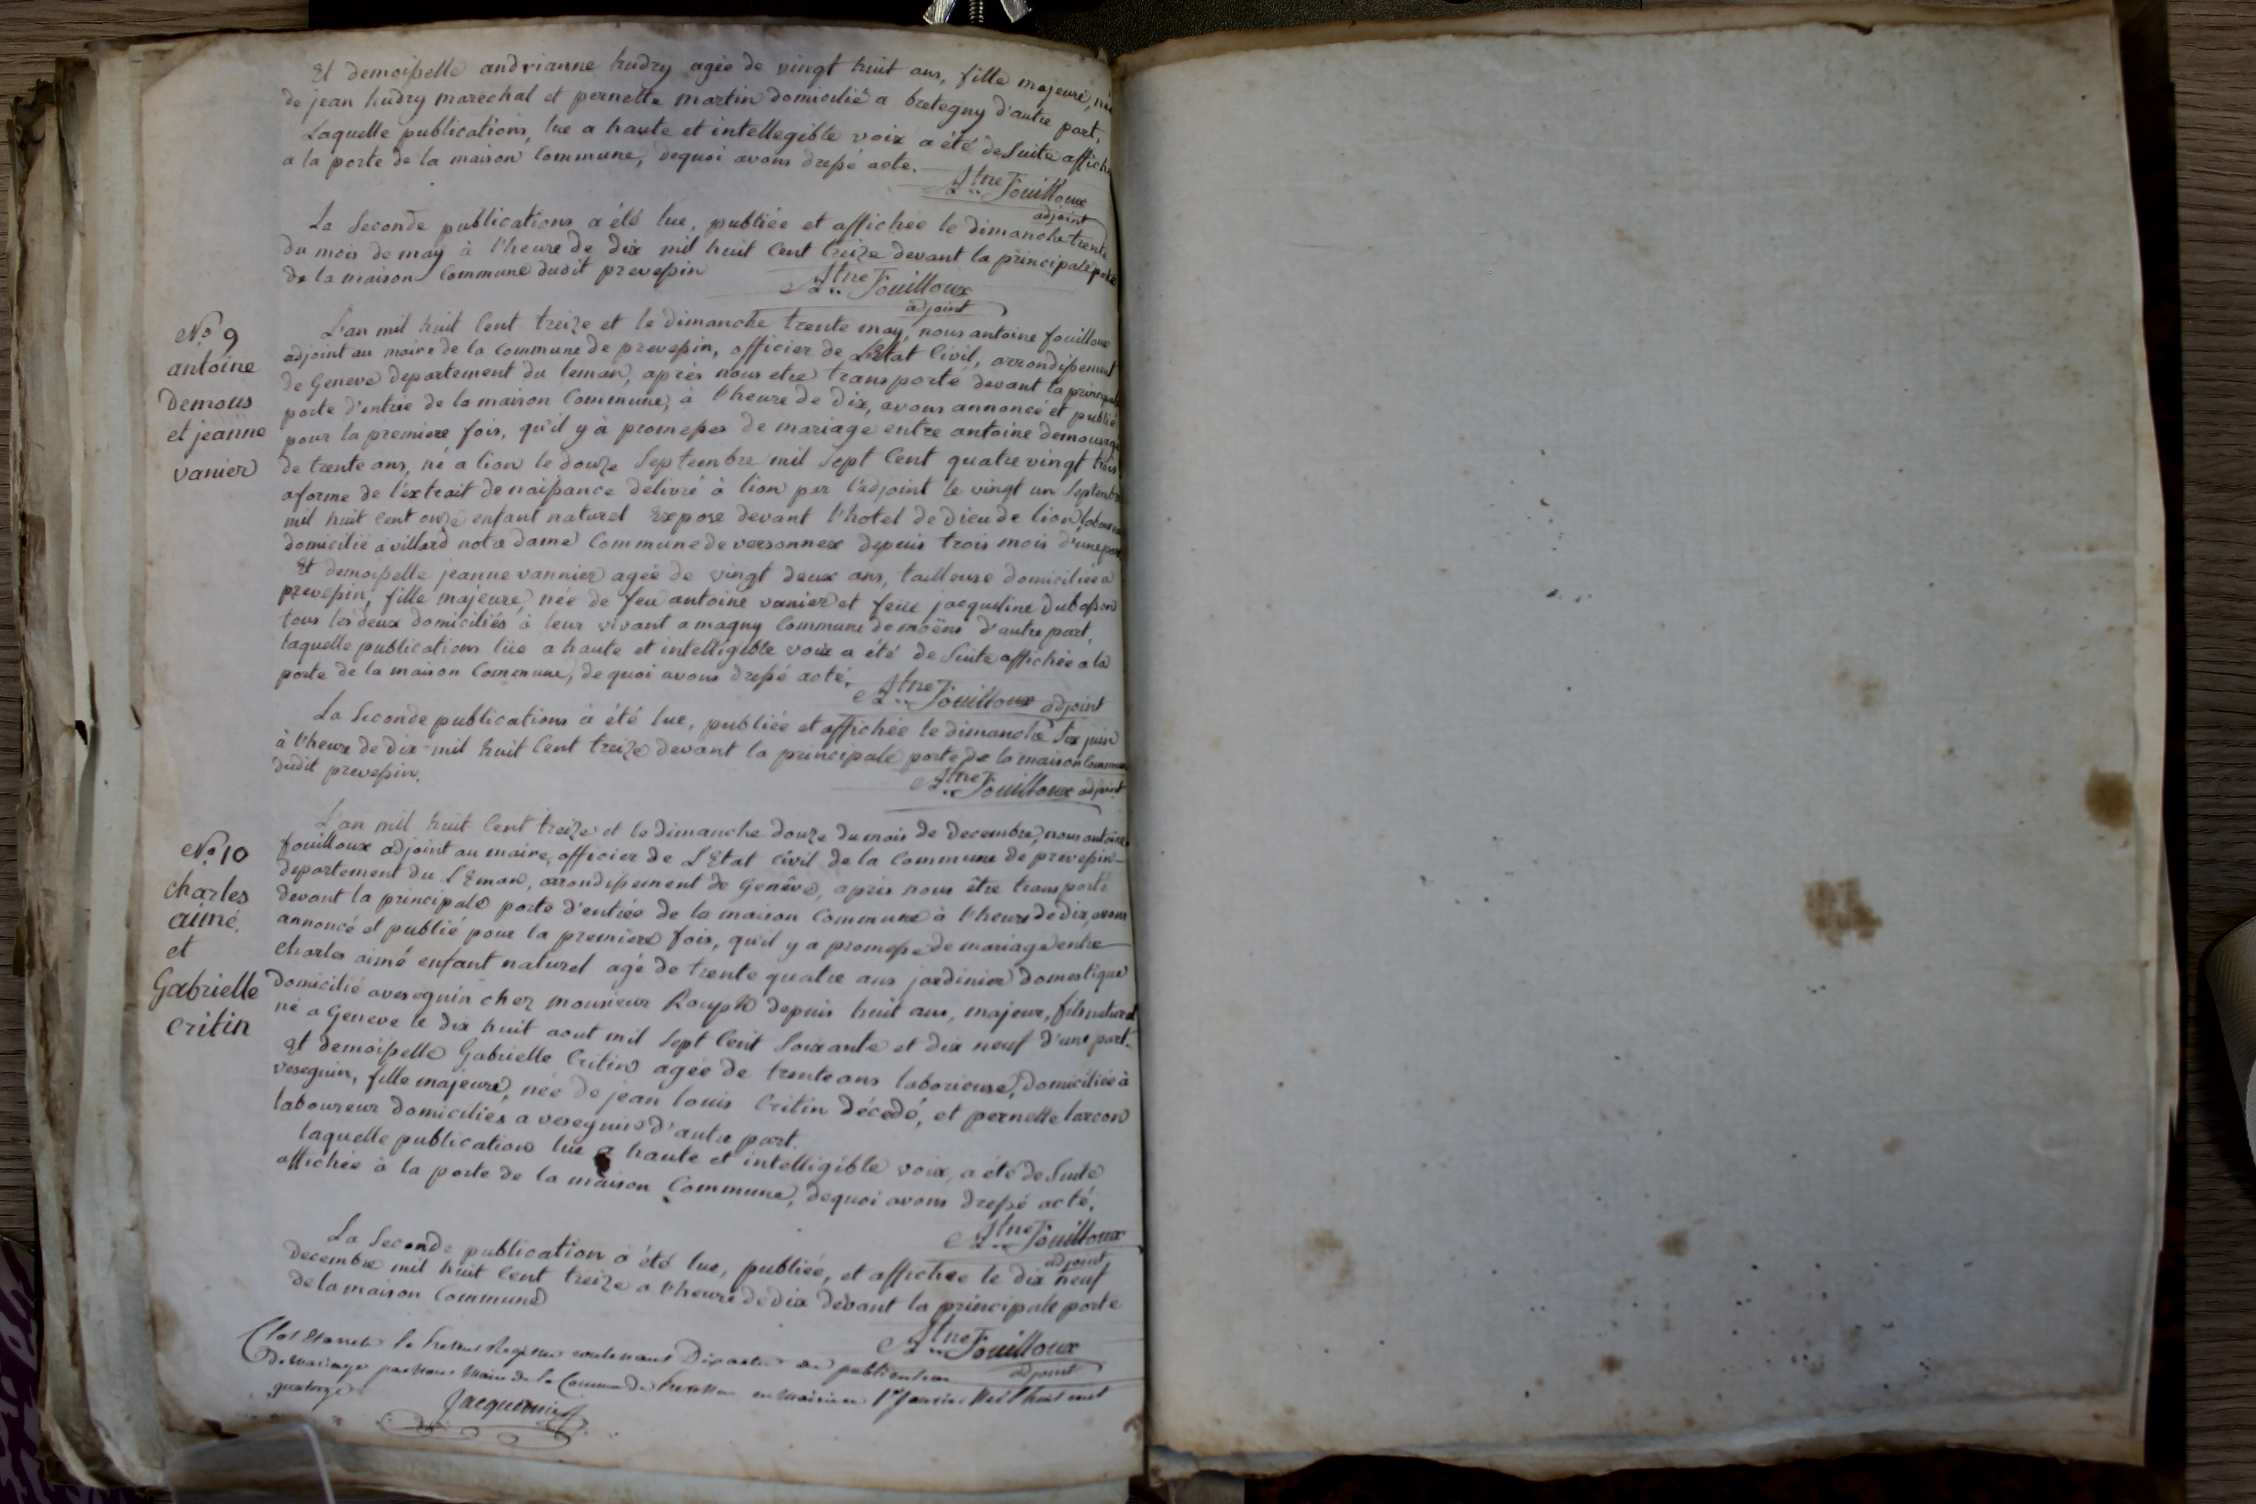 Et demoiselle andrianne hudry agée de vingt huit ans, fille majeure, née
de jean hudry marechal et pernette martin domicilié a bretegny d'autre part,
Laquelle publications, lue a haute et intellegible voix a été de Suite affiché
a la porte de la maison Commune, dequoi avons dressé acte.
Atne Fouilloux
adjoint
La Seconde publications a été lue, publiée et affichée le dimanche trente
du mois de may à l'heure de dix mil huit Cent treize devant la principale porte
de la maison Commune dudit prevessin
Atne Fouilloux
adjoint
No 9
antoine
Demous
et jeanne
vanier
L'an mil huit Cent treize et le dimanche trente may, nous antoine fouilloux
adjoint au maire de la Commune de prevessin, officier de L'Etat Civil, arrondissement
de Geneve departement du leman, après nous etre transporté devant la principale
porte d'entrée de la maison Commune, à l'heure de dix, avons annoncé et publié
pour la premiere fois, qu'il y à promesses de mariage entre antoine demous agé
de trente ans, né a lion le douze Septembre mil Sept Cent quatre vingt trois
aforme de l'extrait de naissance délivré à lion par l'adjoint le vingt un Septembre
mil huit Cent onze enfant naturel Exposé devant l'hotel de Dieu de lion, laboureur
domicilié à villard notre dame Commune de versonnex depuis trois mois d'une part
Et demoiselle jeanne vannier agée de vingt deux ans, tailleuse domiciliée a
prévessin, fille majeure, née de feu antoine vanier et feue jacqueline dubosson
tous les deux domiciliés à leur vivant a magny Commune de moëns d'autre part,
laquelle publications lüe a haute et intelligible voix a été de Suite affichée a la
porte de la maison Commune, de quoi avons dressé acté.
Atne Fouilloux adjoint
La Seconde publications à été lue, publiée et affichée le dimanche Six juin
à l'heure de dix mil huit Cent treize devant la principale porte de la maison Commune
dudit prevessin.
Atne Fouilloux adjoint
No 10
charles
aimé.
et
Gabrielle
critin
L'an mil huit Cent treize et le dimanche douze du mois de decembre, nous antoine
fouilloux adjoint au maire, officier de L'Etat civil de la Commune de prevessin
departement du LEman, arrondissement de Genêve, aprés nous être transporté
devant la principale porte d'entrée de la maison Commune à l'heure de dix, avons
annoncé et publié pour la premiere fois, qu'il y a promesse de mariage entre
Charles aimé enfant naturel agé de trente quatre ans jardinier domestique
domicilié a veseguin chez monsieur Rouph depuis huit ans, majeur, fils naturel
né a Geneve le dix huit aout mil Sept Cent Soixante et dix neuf d'une part.
Et demoiselle Gabrielle Critin agée de trente ans laborieuse, domiciliée à
veseguin, fille majeure, née de jean louis Critin décedé, et pernette larcon
laboureur domiciliés a veseguin d'autre part.
laquelle publication lue a haute et intelligible voix, a été de Suite
affichée à la porte de la maison Commune, dequoi avons dressé acté.
Atne Fouilloux
adjoint
La Seconde publication a été lue, publiée, et affichée le dix neuf
decembre mil huit Cent treize a l'heure de dix devant la principale porte
de la maison Commune
Atne Fouilloux
adjoint
Clos et arreté le present Registre contenant Dix actes de publication
de mariage par nous Maire de la Commune de Prevessin en Mairie ce 1er janvier Mil huit cent
quatorze
Jacquemier